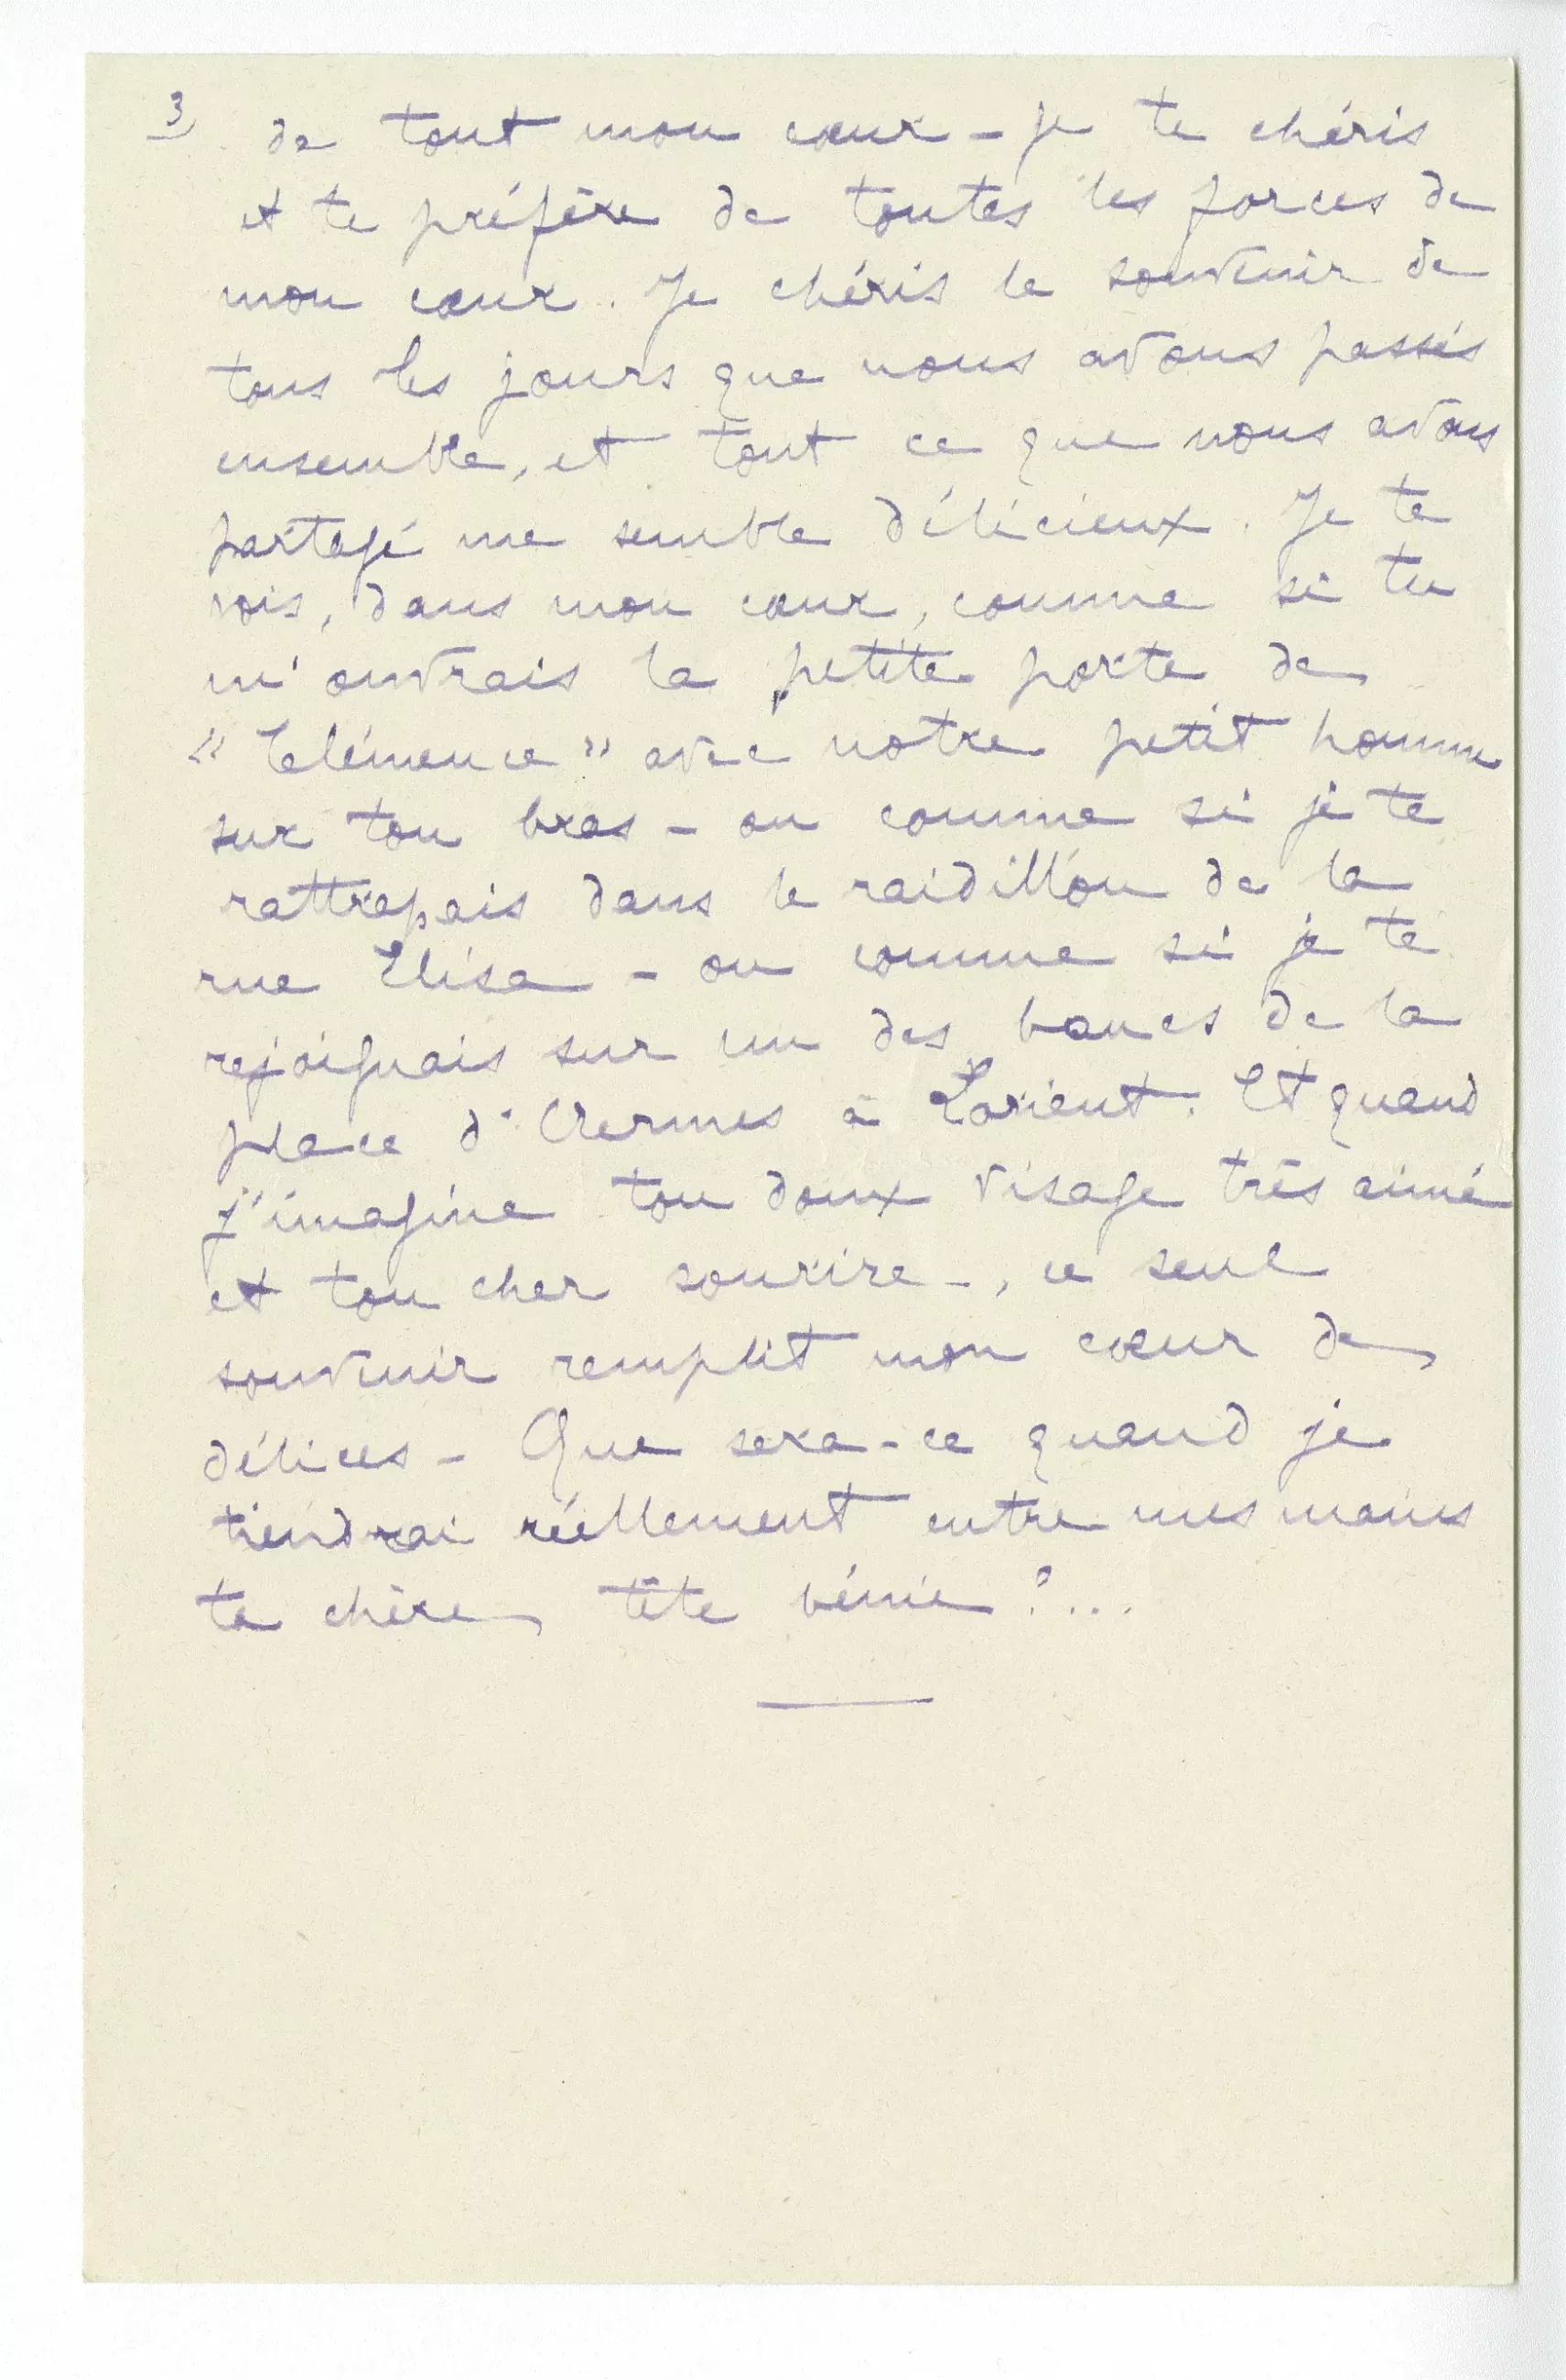 3) de tout mon cœur - je te chéris
et te préfère de toutes les forces de
mon cœur. Je chéris le souvenir de
tous les jours que nous avons passés
ensemble, et tout ce que nous avons
partagé me semble délicieux. Je te
vois, dans mon cœur, comme si tu
m'ouvrais la petite porte de
"Clémence" avec notre petit homme
sur ton bras - ou comme si je te
rattrapais dans le raidillon de la
rue Elisa - ou comme si je te
rejoignais sur un des bancs de la
place d'Armes à Lorient. Et quand
j'imagine ton doux visage très aimé
et ton cher sourire -, ce seul
souvenir remplit mon cœur de
délices - Que sera-ce quand je
tiendrai réellement entre mes mains
ta chère tête bénie ?...